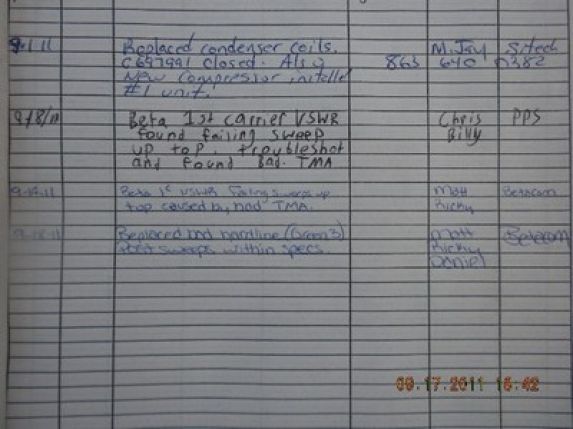 9-1-11 Replaced condenser coils. M. Jay Sitech
C697991 closed. Also 863 640 0382
New Compressor
#1 unit.
9/8/11 Beta 1st carrier VSWR Chris PPS
found failing sweep Billy
up top. troubleshot
and found Bad. TMA
Beta 1st VSWR failing sweeps up Matt Betacom
top caused by bad TMA. Ricky
Replaced bad hardline (Green 3) Matt Betacom
Post sweeps within specs. Ricky
Daniel
09.17.2011 16:42